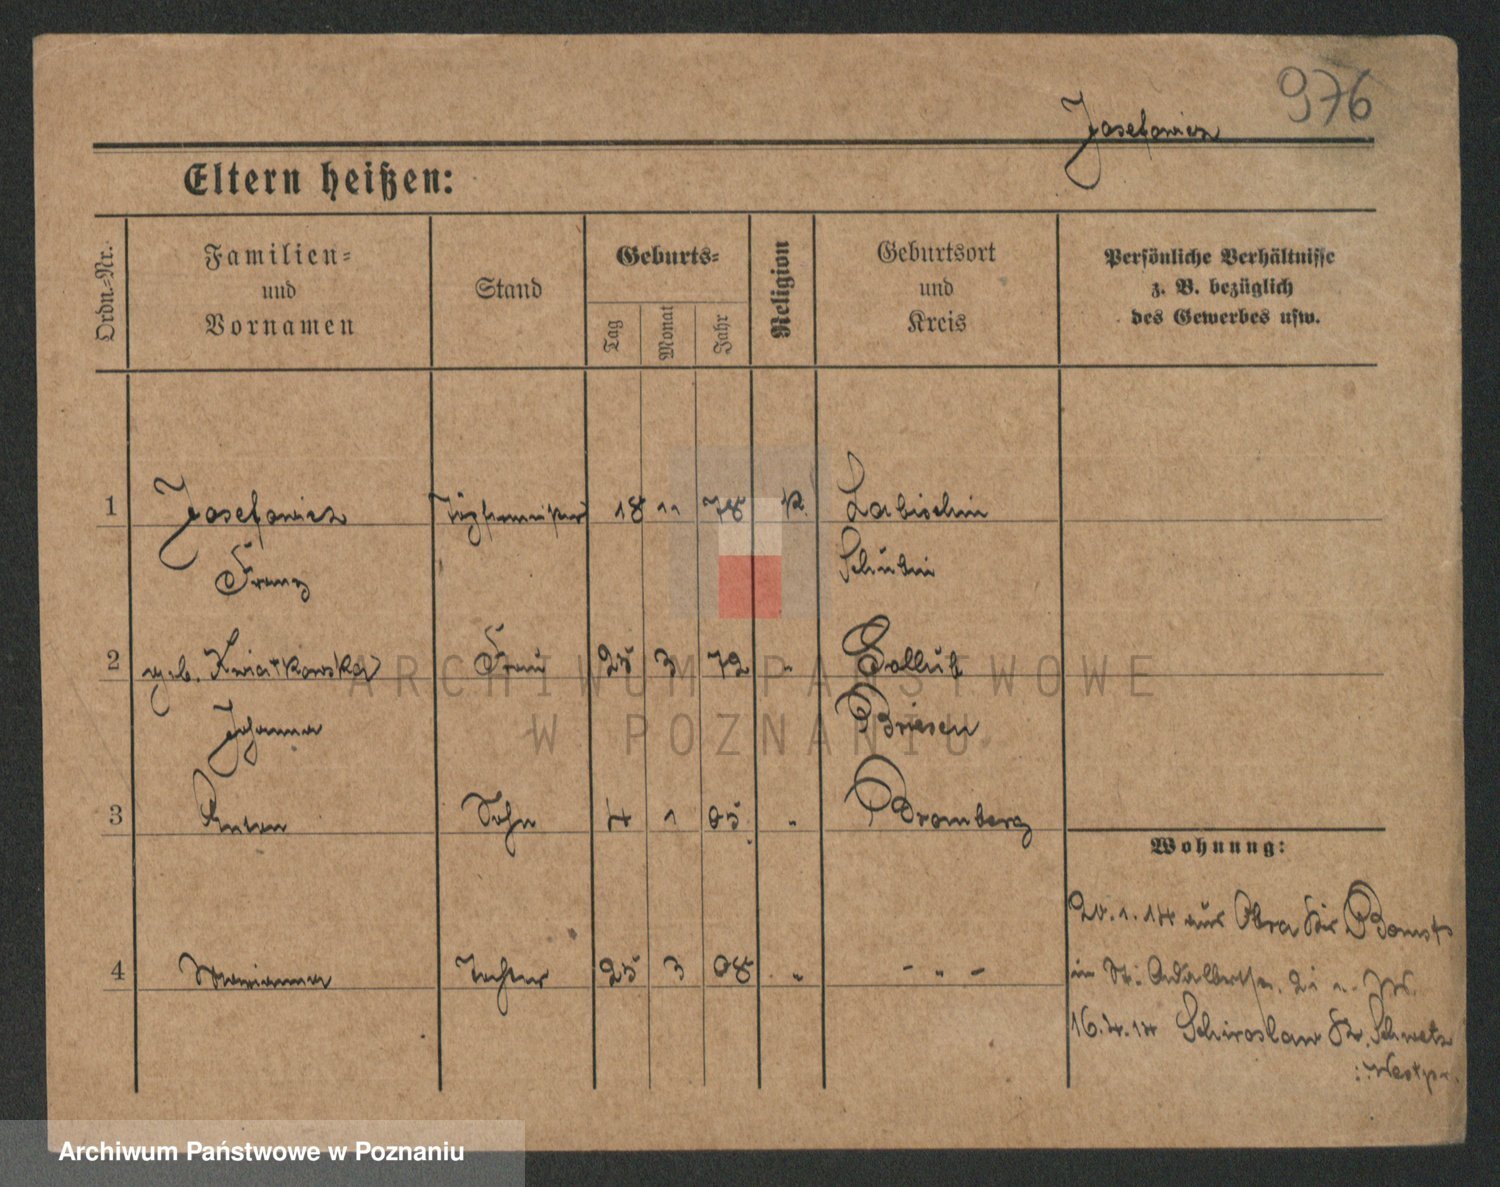 976
Josefowicz
Eltern heißen:
Ordn.-Nr.
Familien-
und
Vornamen
Stand
Geburts-
Tag
Monat
Jahr
Religion
Geburtsort
und
Kreis
Persönliche Verhältnisse
z. B. bezüglich
des Gewerbes usw.
1 Josefowicz 18 11 78 k. Labischin
Franz Schubin
2 geb. Kwiatkowska Frau 25 3 72 " Gollub
Johanna Briesen
3 Anton Sohn 4 1 05 " Bromberg
Wohnung:
20.1.14 aus Obra Kr. Bomst
4 Marianna Tochter 25 3 08 " - " -
in St. Adalbertstr.
16.4.14 Schiroslaw Kr. Schwetz
Westpr.
ARCHIWUM PAŃSTWOWE
W POZNANIU
Archiwum Państwowe w Poznaniu